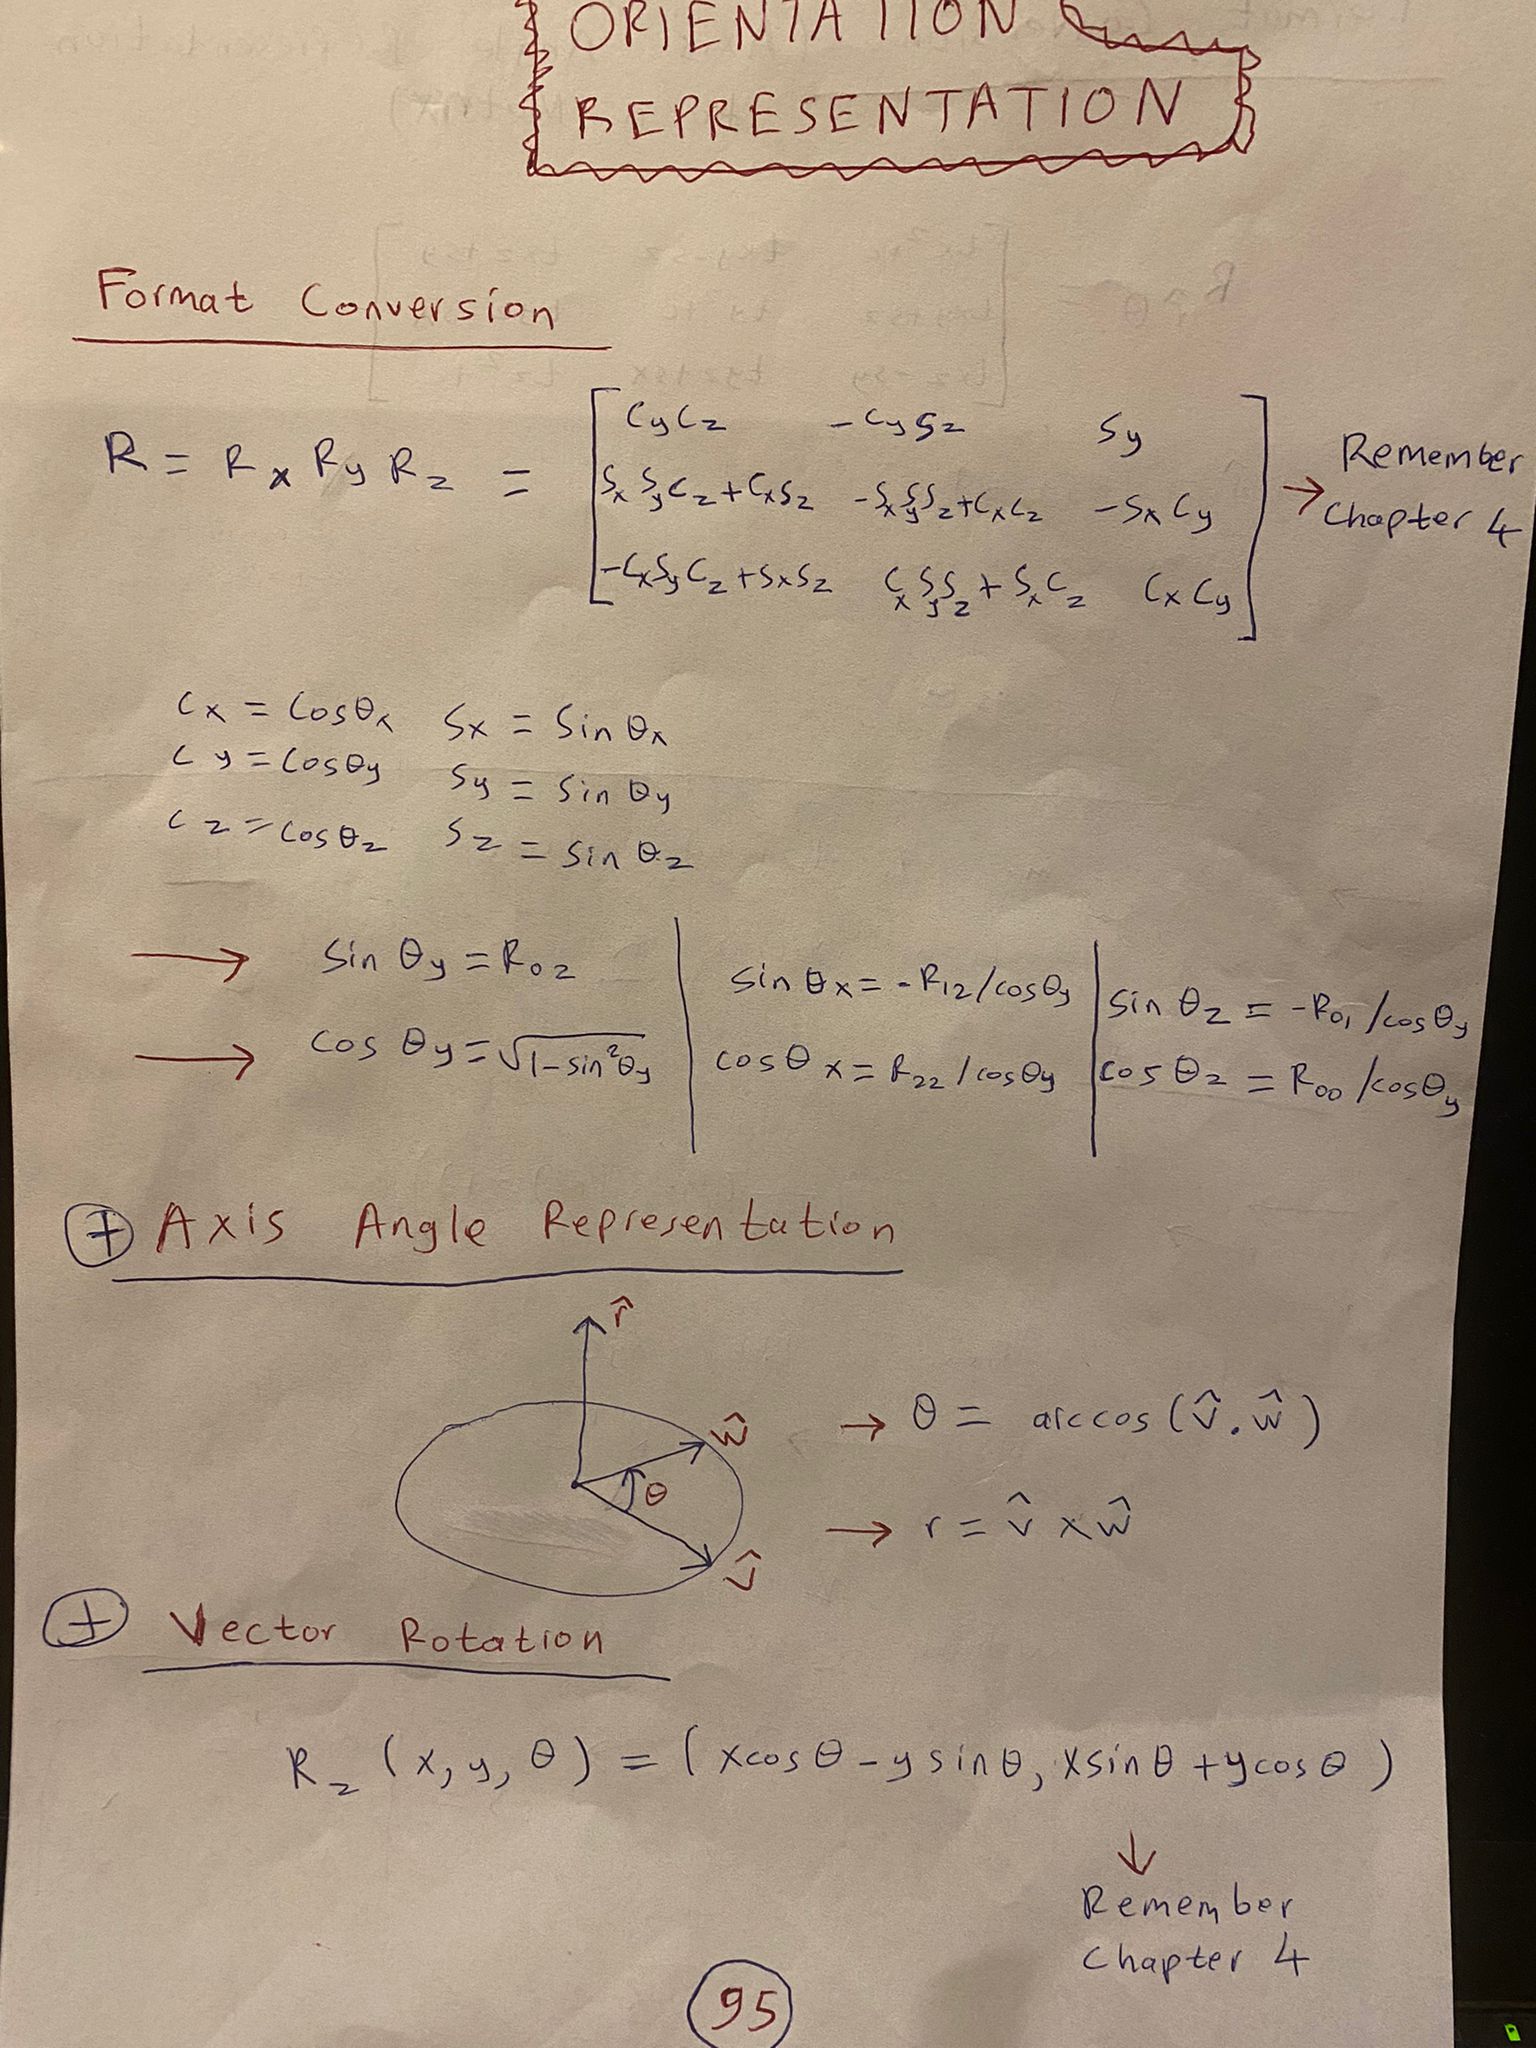 ORIENTATION
REPRESENTATION
Format Conversion
R = Rx Ry Rz = [ CyCz -CySz Sy
SxSyCz+CxSz -SxSySz+CxCz -SxCy
-CxSyCz+SxSz CxSySz+SxCz CxCy ] → Remember
Chapter 4
Cx = Cosθx Sx = Sin θx
Cy = Cosθy Sy = Sin θy
Cz = Cosθz Sz = Sin θz
→ Sin θy = R02 | sin θx = -R12/cosθy | sin θz = -R01/cosθy
→ cos θy = √1-sin²θy | cosθx = R22/cosθy | cos θz = R00/cosθy
+ Axis Angle Representation
r̂
ŵ
θ
v̂
→ θ = arccos(v̂.ŵ)
→ r = v̂ x ŵ
+ Vector Rotation
Rz (x,y,θ) = (xcosθ-ysinθ, xsinθ+ycosθ)
↓
Remember
Chapter 4
95